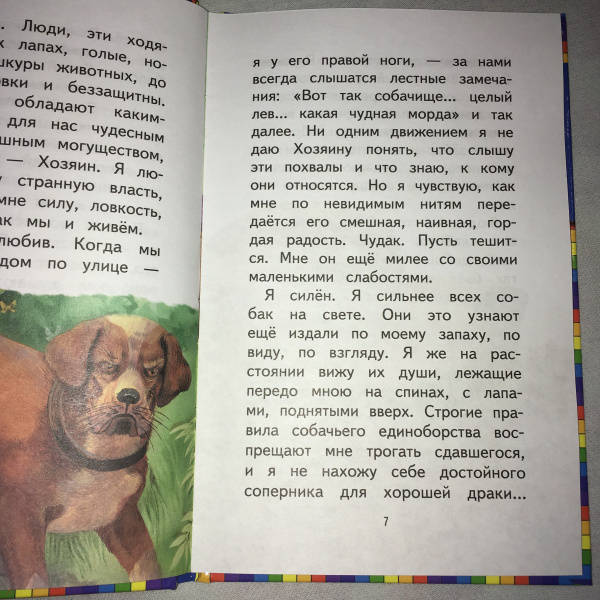 . Люди, эти ходя-
х лапах, голые, но-
шкуры животных, до
овки и беззащитны.
обладают каким-
для нас чудесным
шным могуществом,
— Хозяин. Я лю-
у странную власть,
мне силу, ловкость,
ак мы и живём.
любив. Когда мы
дом по улице —
я у его правой ноги, — за нами
всегда слышатся лестные замеча-
ния: «Вот так собачище... целый
лев... какая чудная морда» и так
далее. Ни одним движением я не
даю Хозяину понять, что слышу
эти похвалы и что знаю, к кому
они относятся. Но я чувствую, как
мне по невидимым нитям пере-
даётся его смешная, наивная, гор-
дая радость. Чудак. Пусть тешит-
ся. Мне он ещё милее со своими
маленькими слабостями.
Я силён. Я сильнее всех со-
бак на свете. Они это узнают
ещё издали по моему запаху, по
виду, по взгляду. Я же на рас-
стоянии вижу их души, лежащие
передо мною на спинах, с лапа-
ми, поднятыми вверх. Строгие пра-
вила собачьего единоборства вос-
прещают мне трогать сдавшегося,
и я не нахожу себе достойного
соперника для хорошей драки...
7